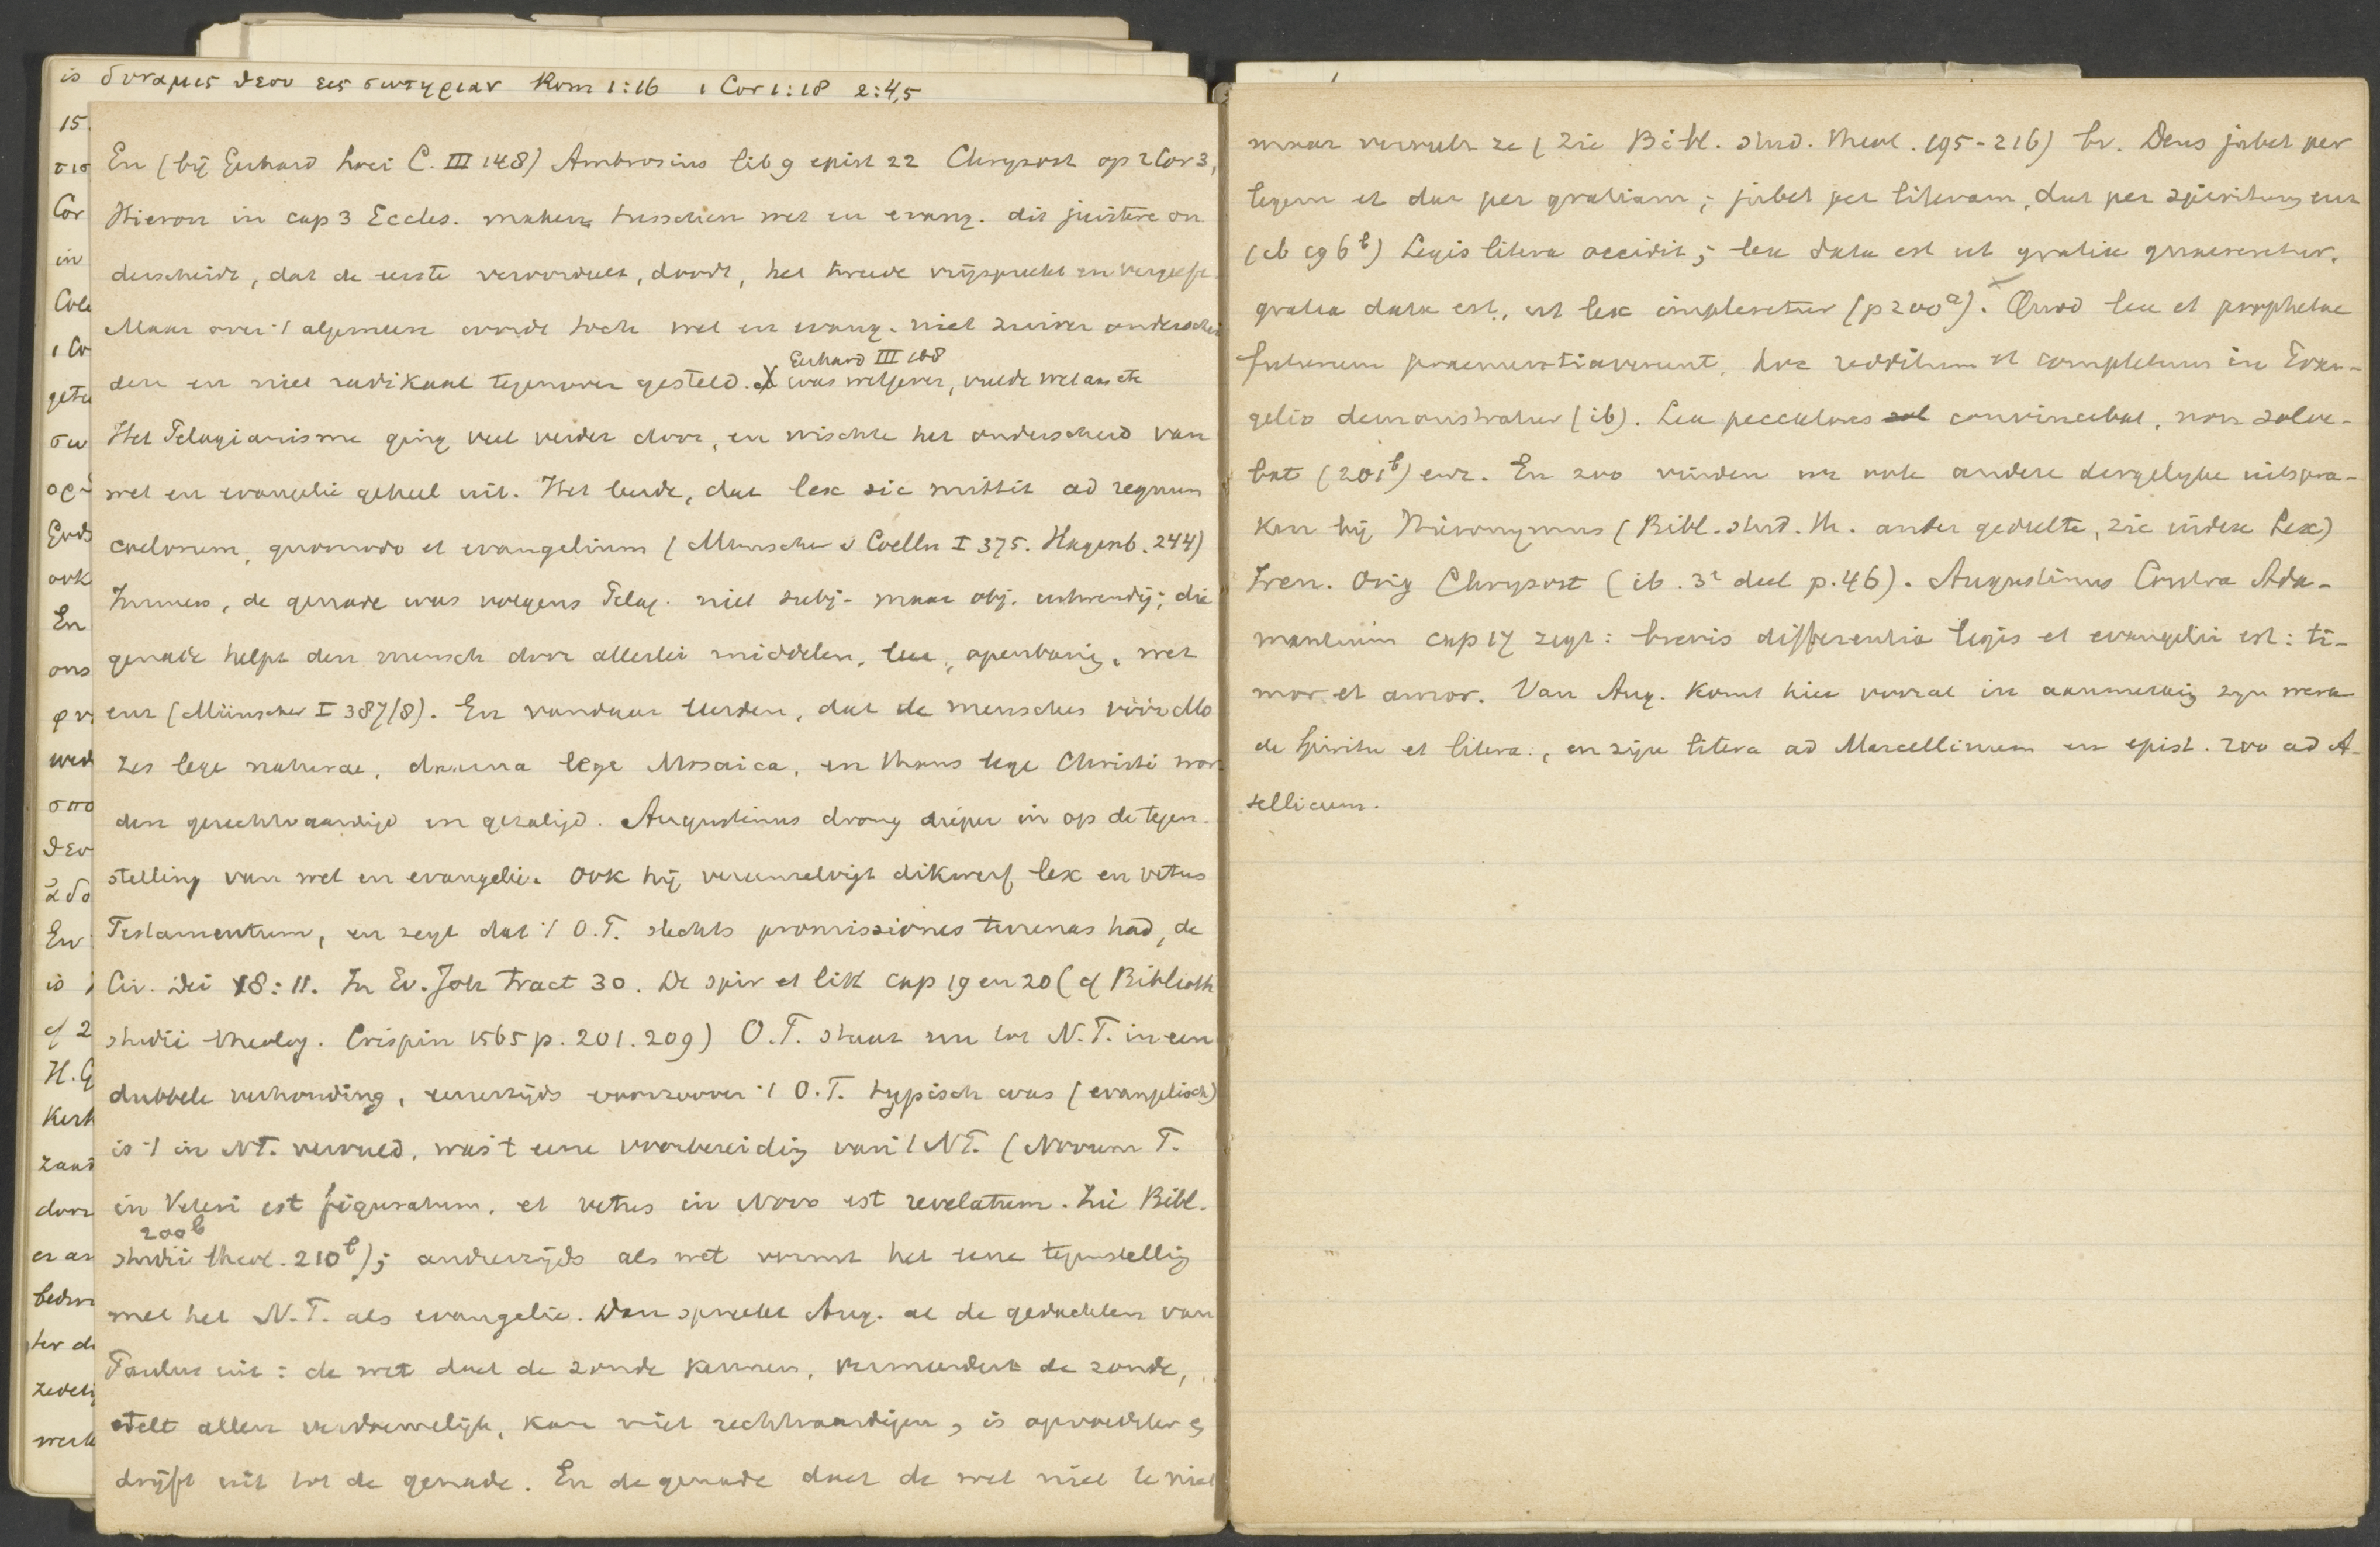 is δυναμις θεου εις σωτηριαν Rom 1:16 1 Cor 1:18 2:4,5
En (bij Gerhard Loci C. III 148) Ambrosius lib 9 epist 22 Chrysost op 2 Cor 3,
Hieron in cap 3 Eccles. maken tusschen wet en evang. dit juiste on
derscheid, dat de eerste veroordeelt, doodt, het tweede vrijspreekt en vergeeft.
Maar over 't algemeen werde toch wet en evang. niet zuiver onderschei
Gerhard III 188
den en niet radikaal tegenover gesteld. X was wetgever, vulde wet aan etc
Het Pelagianisme ging veel verder door, en wischte het onderscheid van
wet en evangelie geheel uit. Het leerde, dat lex sic mittit ad regnum
coelorum, quomodo et evangelium (Munscher v Coelln I 375. Hagenb. 244)
Immers, de genade was volgens Pelag. niet subj- maar obj. uitwendig; die
genade helpt den mensch door allerlei middelen, leer, openbaring, wet
enz (Münscher I 387/8). En vandaar leerden, dat de menschen vóór Mo
zes lege naturae, daarna lege Mosaica, en thans lege Christi wor
den gerechtvaardigd en gezaligd. Augustinus drong dieper in op de tegen-
stelling van wet en evangelie. Ook hij vereenzelvigt dikwerf lex en vetus
Testamentum, en zegt dat 't O.T. slechts promissiones terrenas had, de
Civ. Dei 18:11. In Ev. Joh tract 30. De spir et litt cap 19 en 20 (cf Biblioth
studii theolog. Crispin 1565 p. 201. 209) O.T. staat nu tot N.T. in een
dubbele verhouding, eenerzijds voorzoover 't O.T. typisch was (evangelisch)
is 't in NT. vervuld, was 't eene voorbereiding van 't NT. (Novum T.
in Veteri est figuratum, et vetus in Novo est revelatum. Zie Bibl.
200b
studii theol. 210b); anderzijds als wet vormt het eene tegenstelling
met het N.T. als evangelie. Dan spreekt Aug. al de gedachten van
Paulus uit: de wet doet de zonde kennen, vermeerdert de zonde,
stelt allen verdoemelijk, kan niet rechtvaardigen, is opvoedster &
drijft uit tot de genade. En de genade doet de wet niet te niet
15
Cor
in
1 Co
En
ons
En
is
cf 2
H. G
Kerk
maar vervult ze (zie Bibl. stud. theol. 195-216) bv. Deus jubet per
legem et dat per gratiam; jubet per literam, dat per spiritum enz
(ib 196b) Legis litera occidit; lex data est ut gratia quaereretur,
gratia data est, ut lex impleretur (p 200a). Quod lex et prophetae
futurum praenuntiaverunt, hoc redditum et completum in Evan-
gelio demonstratur (ib). Lex peccatores convincebat, non salva-
bat (201b) enz. En zoo vinden we vele andere dergelijke uitspra-
ken bij Hieronymus (Bibl. stud. th. ander gedeelte, zie index Lex)
Iren. Orig Chrysost (ib. 3e deel p. 46). Augustinus Contra Ada-
mantium cap 17 zegt: brevis differentia legis et evangelii est: ti-
mor et amor. Van Aug. komt hier vooral in aanmerking zijn werk
de Spiritu et litera, en zijne litera ad Marcellinum en epist. 200 ad A-
sellicum.